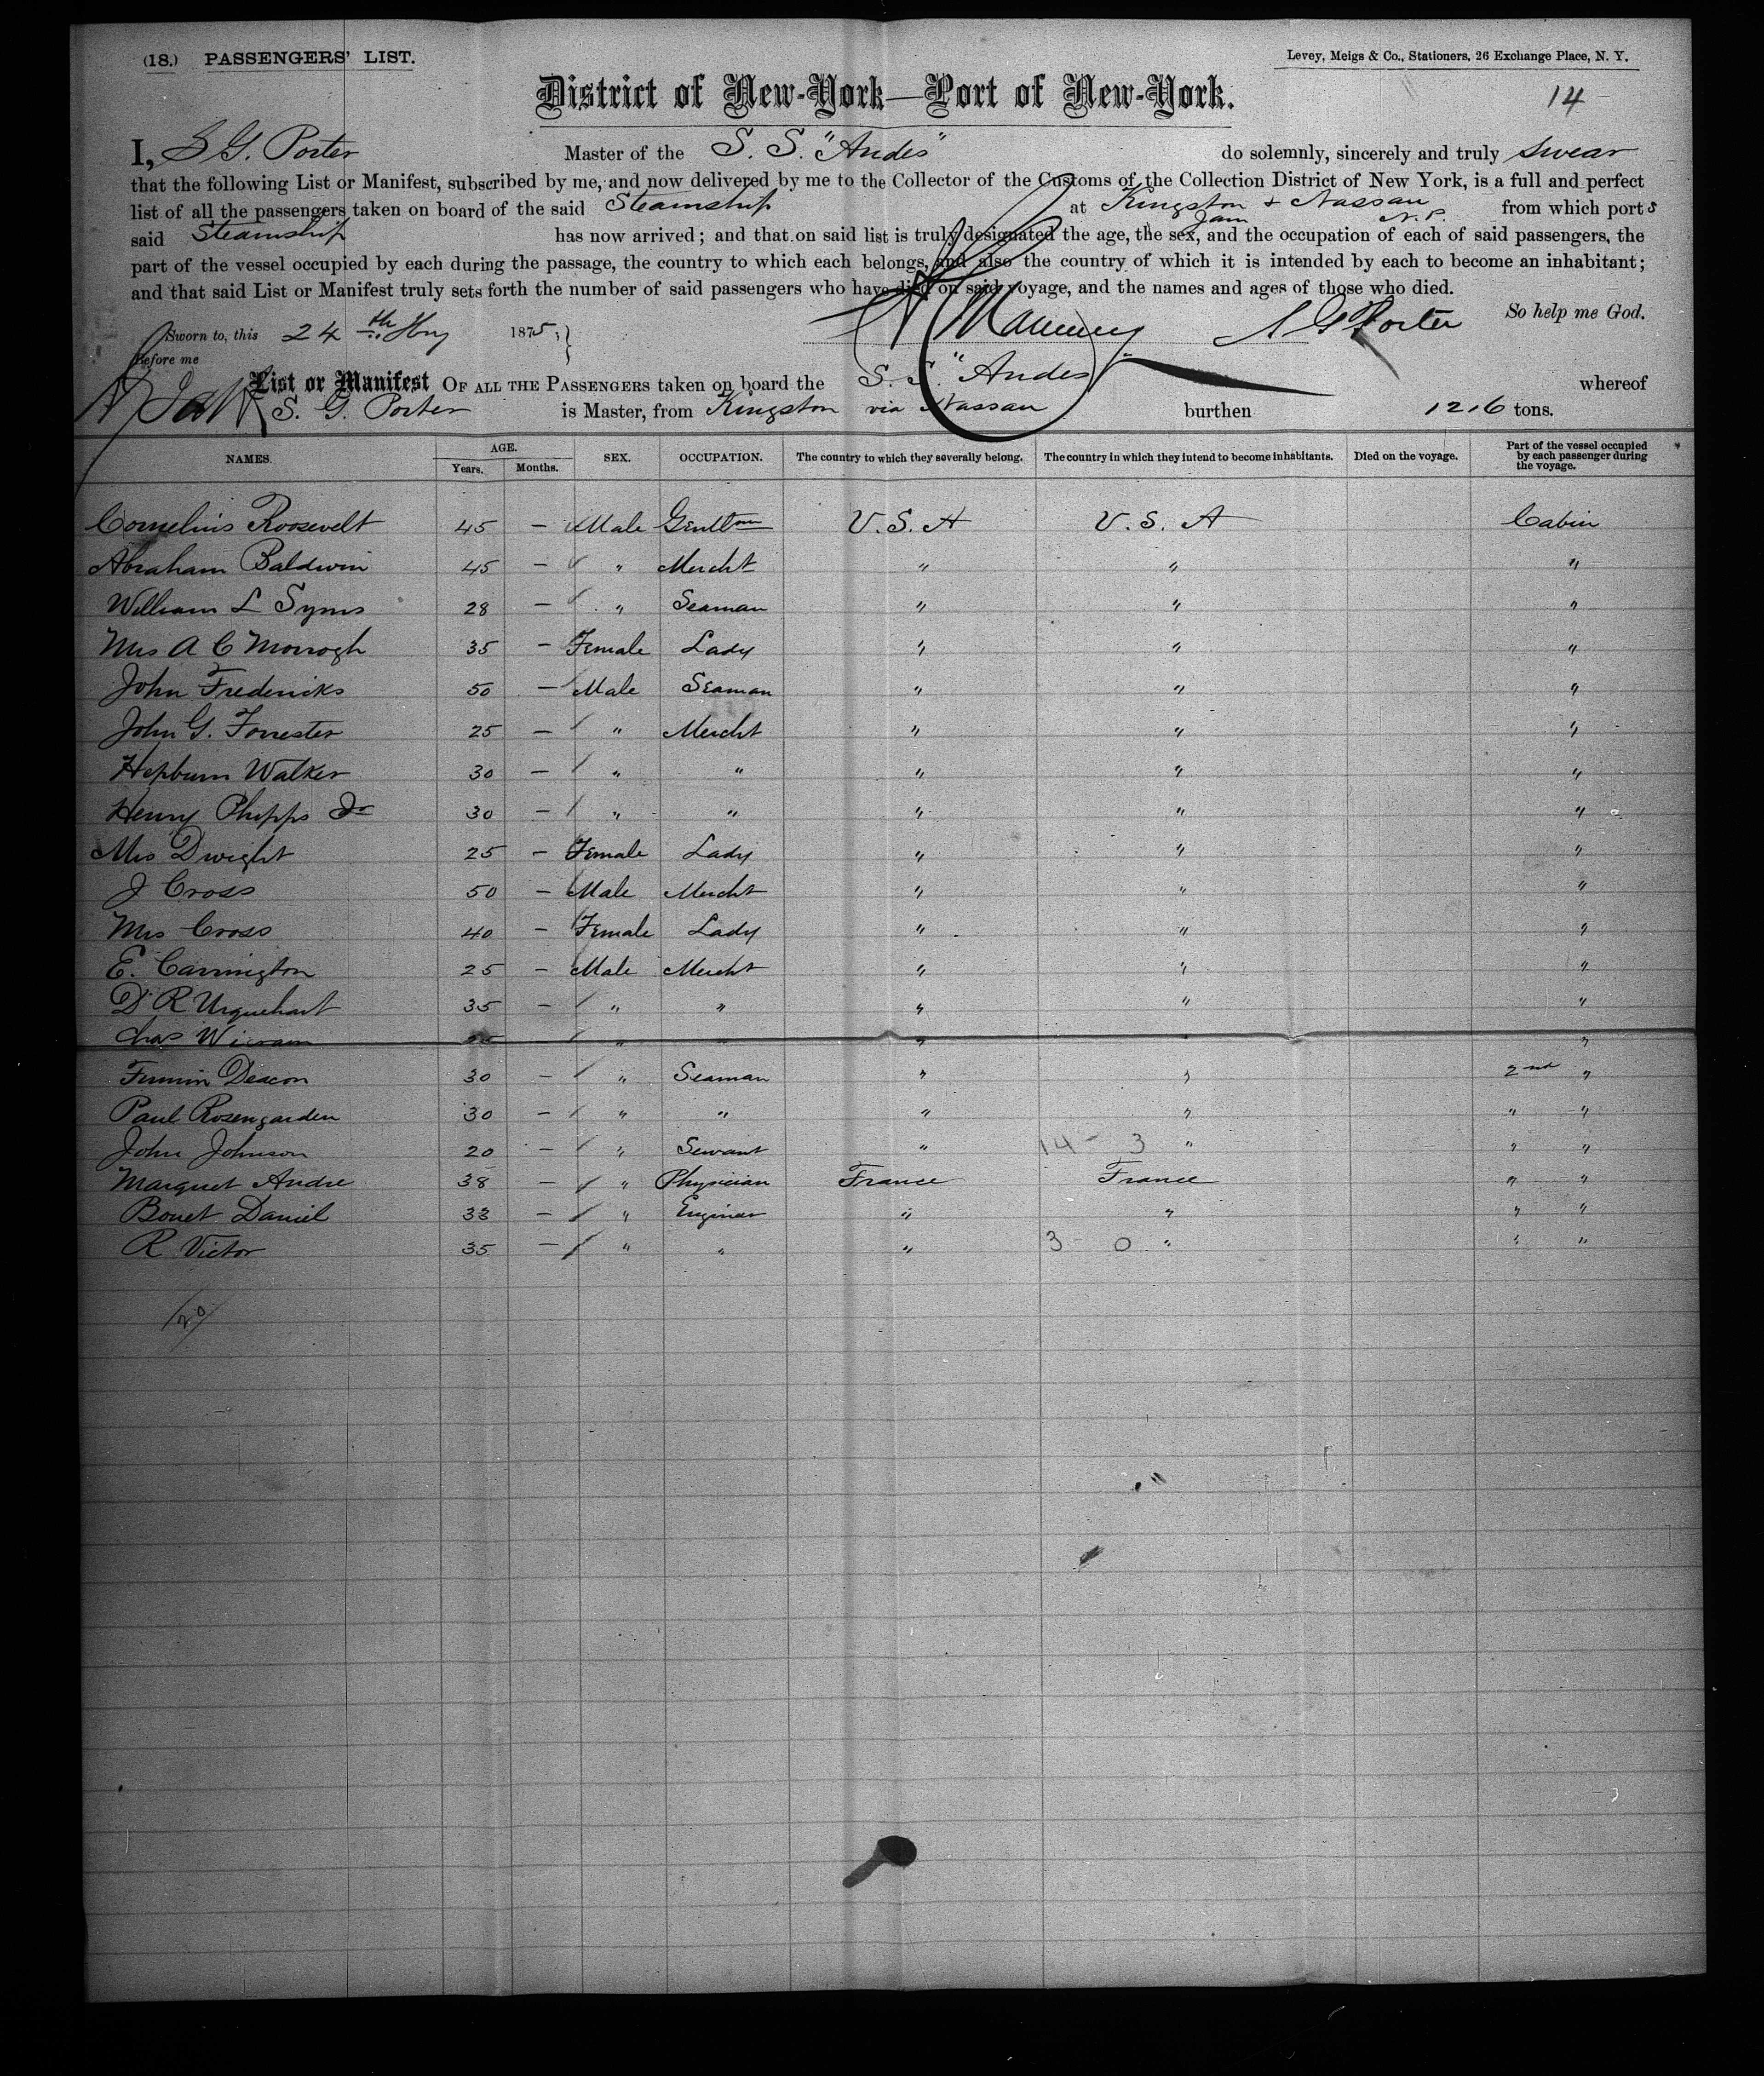 (18.) PASSENGERS' LIST.
Levey, Meigs & Co., Stationers, 26 Exchange Place, N. Y.
District of New-York—Port of New-York.
14
I, S G. Porter Master of the S. S. "Andes" do solemnly, sincerely and truly swear
that the following List or Manifest, subscribed by me, and now delivered by me to the Collector of the Customs of the Collection District of New York, is a full and perfect
list of all the passengers taken on board of the said Steamship at Kingston Jam + Nassau N. P. from which ports
said Steamship has now arrived; and that on said list is truly designated the age, the sex, and the occupation of each of said passengers, the
part of the vessel occupied by each during the passage, the country to which each belongs, and also the country of which it is intended by each to become an inhabitant;
and that said List or Manifest truly sets forth the number of said passengers who have died on said voyage, and the names and ages of those who died.
So help me God.
Sworn to, this 24th 1875, S G Porter
Before me
List or Manifest OF ALL THE PASSENGERS taken on board the S. S. "Andes" whereof
S. G. Porter is Master, from Kingston via Nassau burthen 1216 tons.
NAMES. AGE. Years. Months. SEX. OCCUPATION. The country to which they severally belong. The country in which they intend to become inhabitants. Died on the voyage. Part of the vessel occupied by each passenger during the voyage.
Cornelius Roosevelt 45 — Male Gentlmn U. S. A U. S. A Cabin
Abraham Baldwin 45 — " Mercht " " "
William L Syms 28 — " Seaman " " "
Mrs A C Morrogh 35 — Female Lady " " "
John Fredericks 50 — Male Seaman " " "
John G. Forrester 25 — " Mercht " " "
Hepburn Walker 30 — " " " " "
Henry Phipps Jr 30 — " " " " "
Mrs Dwight 25 — Female Lady " " "
J Cross 50 — Male Mercht " " "
Mrs Cross 40 — Female Lady " " "
E. Carrington 25 — Male Mercht " " "
D R Urquehart 35 — " " " " "
Chas " " " " "
Firmin Deacon 30 — " Seaman " " 2nd "
Paul Rosengarden 30 — " " " " " "
John Johnson 20 — " Servant " 14 - 3 " " "
Marquet Andre 38 — " Physician France France " "
Bouet Daniel 33 — " Engineer " " " "
R Victor 35 — " " " 3 - 0 " " "
/20/